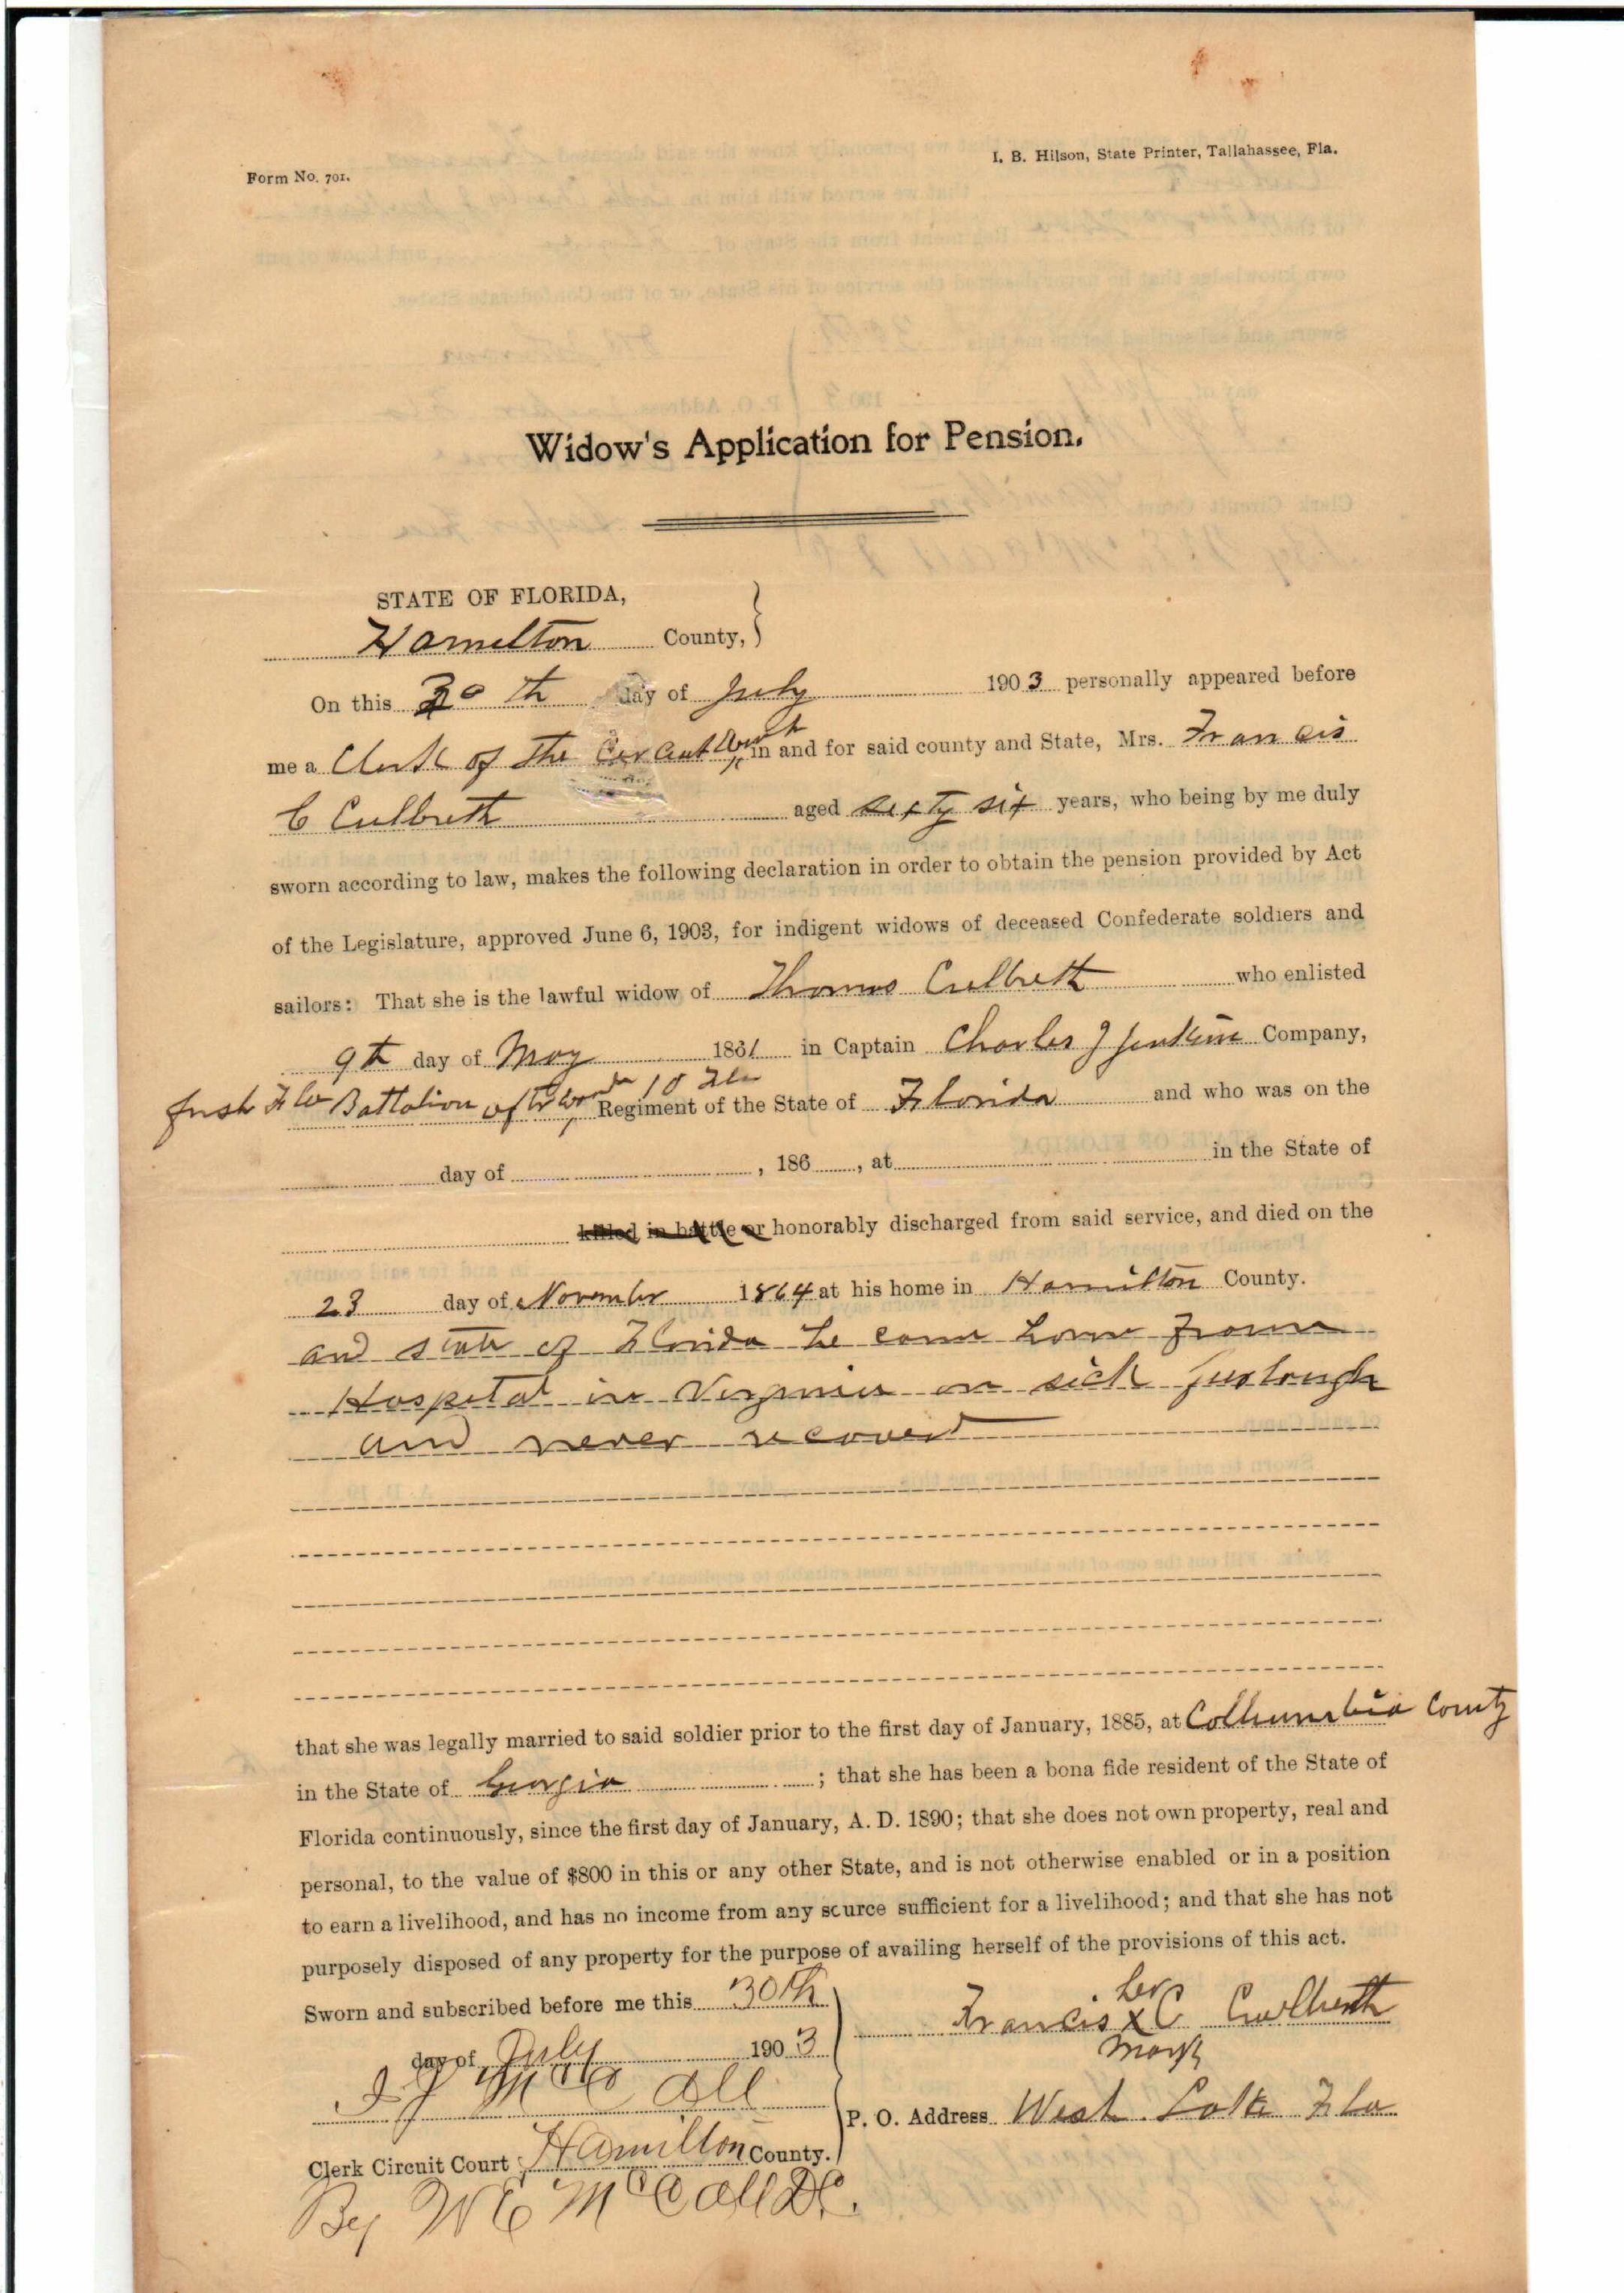 Form No. 701.
I. B. Hilson, State Printer, Tallahassee, Fla.
Widow's Application for Pension.
STATE OF FLORIDA,
Hamilton County,
On this 30th day of July 1903 personally appeared before
me a Clerk of the Circuit Court in and for said county and State, Mrs. Francis
C Culbreth aged sixty six years, who being by me duly
sworn according to law, makes the following declaration in order to obtain the pension provided by Act
of the Legislature, approved June 6, 1903, for indigent widows of deceased Confederate soldiers and
sailors: That she is the lawful widow of Thomas Culbreth who enlisted
9th day of May 1861 in Captain Charles J Jenkins Company,
first Fla Battalion afterwards 10 Fla Regiment of the State of Florida and who was on the
day of , 186 , at in the State of
killed in battle or honorably discharged from said service, and died on the
23 day of November 1864 at his home in Hamilton County.
and state of Florida he come home from
Hospital in Virginia on sick furlough
and never recoverd
that she was legally married to said soldier prior to the first day of January, 1885, at Collumbia County
in the State of Georgia ; that she has been a bona fide resident of the State of
Florida continuously, since the first day of January, A. D. 1890; that she does not own property, real and
personal, to the value of $800 in this or any other State, and is not otherwise enabled or in a position
to earn a livelihood, and has no income from any source sufficient for a livelihood; and that she has not
purposely disposed of any property for the purpose of availing herself of the provisions of this act.
Sworn and subscribed before me this 30th
day of July 1903
J J McCall
Clerk Circuit Court Hamilton County.
By W E McCall D.C.
her
Francis x C Culbreth
mark
P. O. Address West Lake Fla